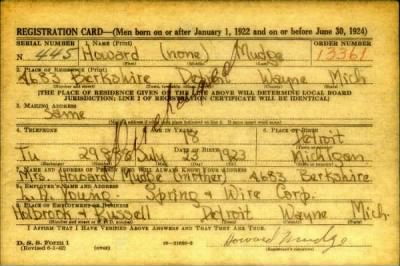 REGISTRATION CARD—(Men born on or after January 1, 1922 and on or before June 30, 1924)
SERIAL NUMBER 1. NAME (Print) ORDER NUMBER
N 445 Howard (none) Mudge 13361
(First) (Middle) (Last)
2. PLACE OF RESIDENCE (Print)
4683 Berkshire Detroit Wayne Mich
(Number and street) (Town, township, village, or city) (County) (State)
[THE PLACE OF RESIDENCE GIVEN ON THE LINE ABOVE WILL DETERMINE LOCAL BOARD
JURISDICTION; LINE 2 OF REGISTRATION CERTIFICATE WILL BE IDENTICAL]
3. MAILING ADDRESS
Same
4. TELEPHONE 5. AGE IN YEARS 6. PLACE OF BIRTH
18 Detroit
DATE OF BIRTH
Tu July 23 1923 Michigan
7. NAME AND ADDRESS OF PERSON WHO WILL ALWAYS KNOW YOUR ADDRESS
Mrs. Howard Mudge (mother) 4683 Berkshire
8. EMPLOYER'S NAME AND ADDRESS
L. A. Young Spring & Wire Corp.
9. PLACE OF EMPLOYMENT OR BUSINESS
Holbrook & Russell Detroit Wayne Mich.
(Number and street or R. F. D. number) (Town) (County) (State)
I AFFIRM THAT I HAVE VERIFIED ABOVE ANSWERS AND THAT THEY ARE TRUE.
D. S. S. Form 1
(Revised 6-9-42)
Howard Mudge